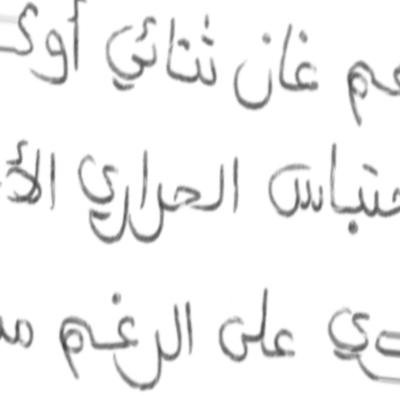 عم غاز ثنائي أوك
حتباس الحراري الأ
على الرغم م